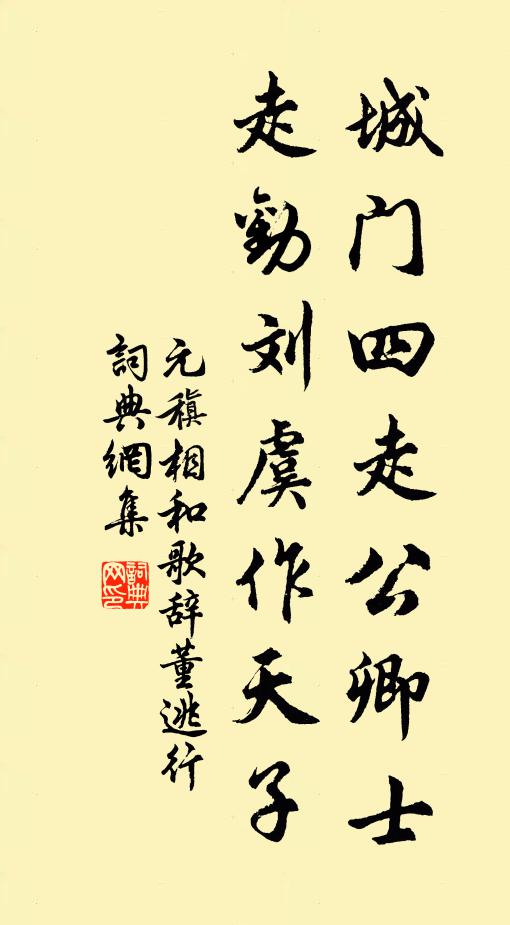 城门四走公卿士
走勸刘虞作天子
元稹相和歌辞董逃行
詞典網集
詞典网印